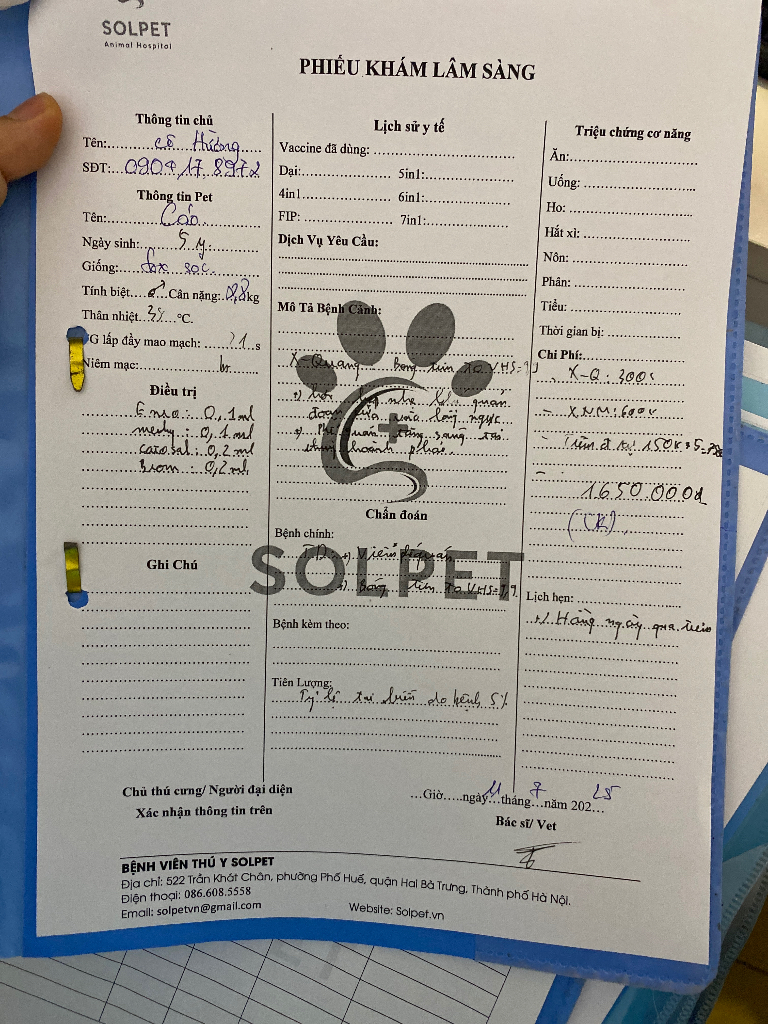 SOLPET
Animal Hospital
PHIẾU KHÁM LÂM SÀNG
Thông tin chủ
Tên: cô Hường
SĐT: 0904 17 8972
Thông tin Pet
Tên: Cáo
Ngày sinh: 5 y
Giống: sóc
Tính biệt ♂ Cân nặng: 0,8kg
Thân nhiệt 38 °C.
G lấp đầy mao mạch: >1 s
Niêm mạc: bt
Điều trị
0,1ml
0,1ml
0,2ml
0,2ml
Ghi Chú
Lịch sử y tế
Vaccine đã dùng:
Dại: 5in1:
4in1 6in1:
FIP: 7in1:
Dịch Vụ Yêu Cầu:
Mô Tả Bệnh Cảnh:
X-Quang bóng tim to VHS=
hơi nhẹ quản
đoạn cửa vào lồng ngực
Phế quản tăng sáng
Chẩn đoán
Bệnh chính:
TD: Viêm
bóng tim to VHS=
Bệnh kèm theo:
Tiên Lượng:
Tỷ lệ tai biến do bệnh 5%
Triệu chứng cơ năng
Ăn:
Uống:
Ho:
Hắt xì:
Nôn:
Phân:
Tiểu:
Thời gian bị:
Chi Phí:
X-Q: 300k
- XNM: 600k
- Tiền đ trị 150k x 5 =
1.650.000đ
(CK)
Lịch hẹn:
Hàng ngày qua tiêm
SOLPET
Chủ thú cưng/ Người đại diện
Xác nhận thông tin trên
...Giờ.....ngày 11 tháng 7 năm 202 25
Bác sĩ/ Vet
BỆNH VIÊN THÚ Y SOLPET
Địa chỉ: 522 Trần Khát Chân, phường Phố Huế, quận Hai Bà Trưng, Thành phố Hà Nội.
Điện thoại: 086.608.5558
Email: solpetvn@gmail.com Website: Solpet.vn